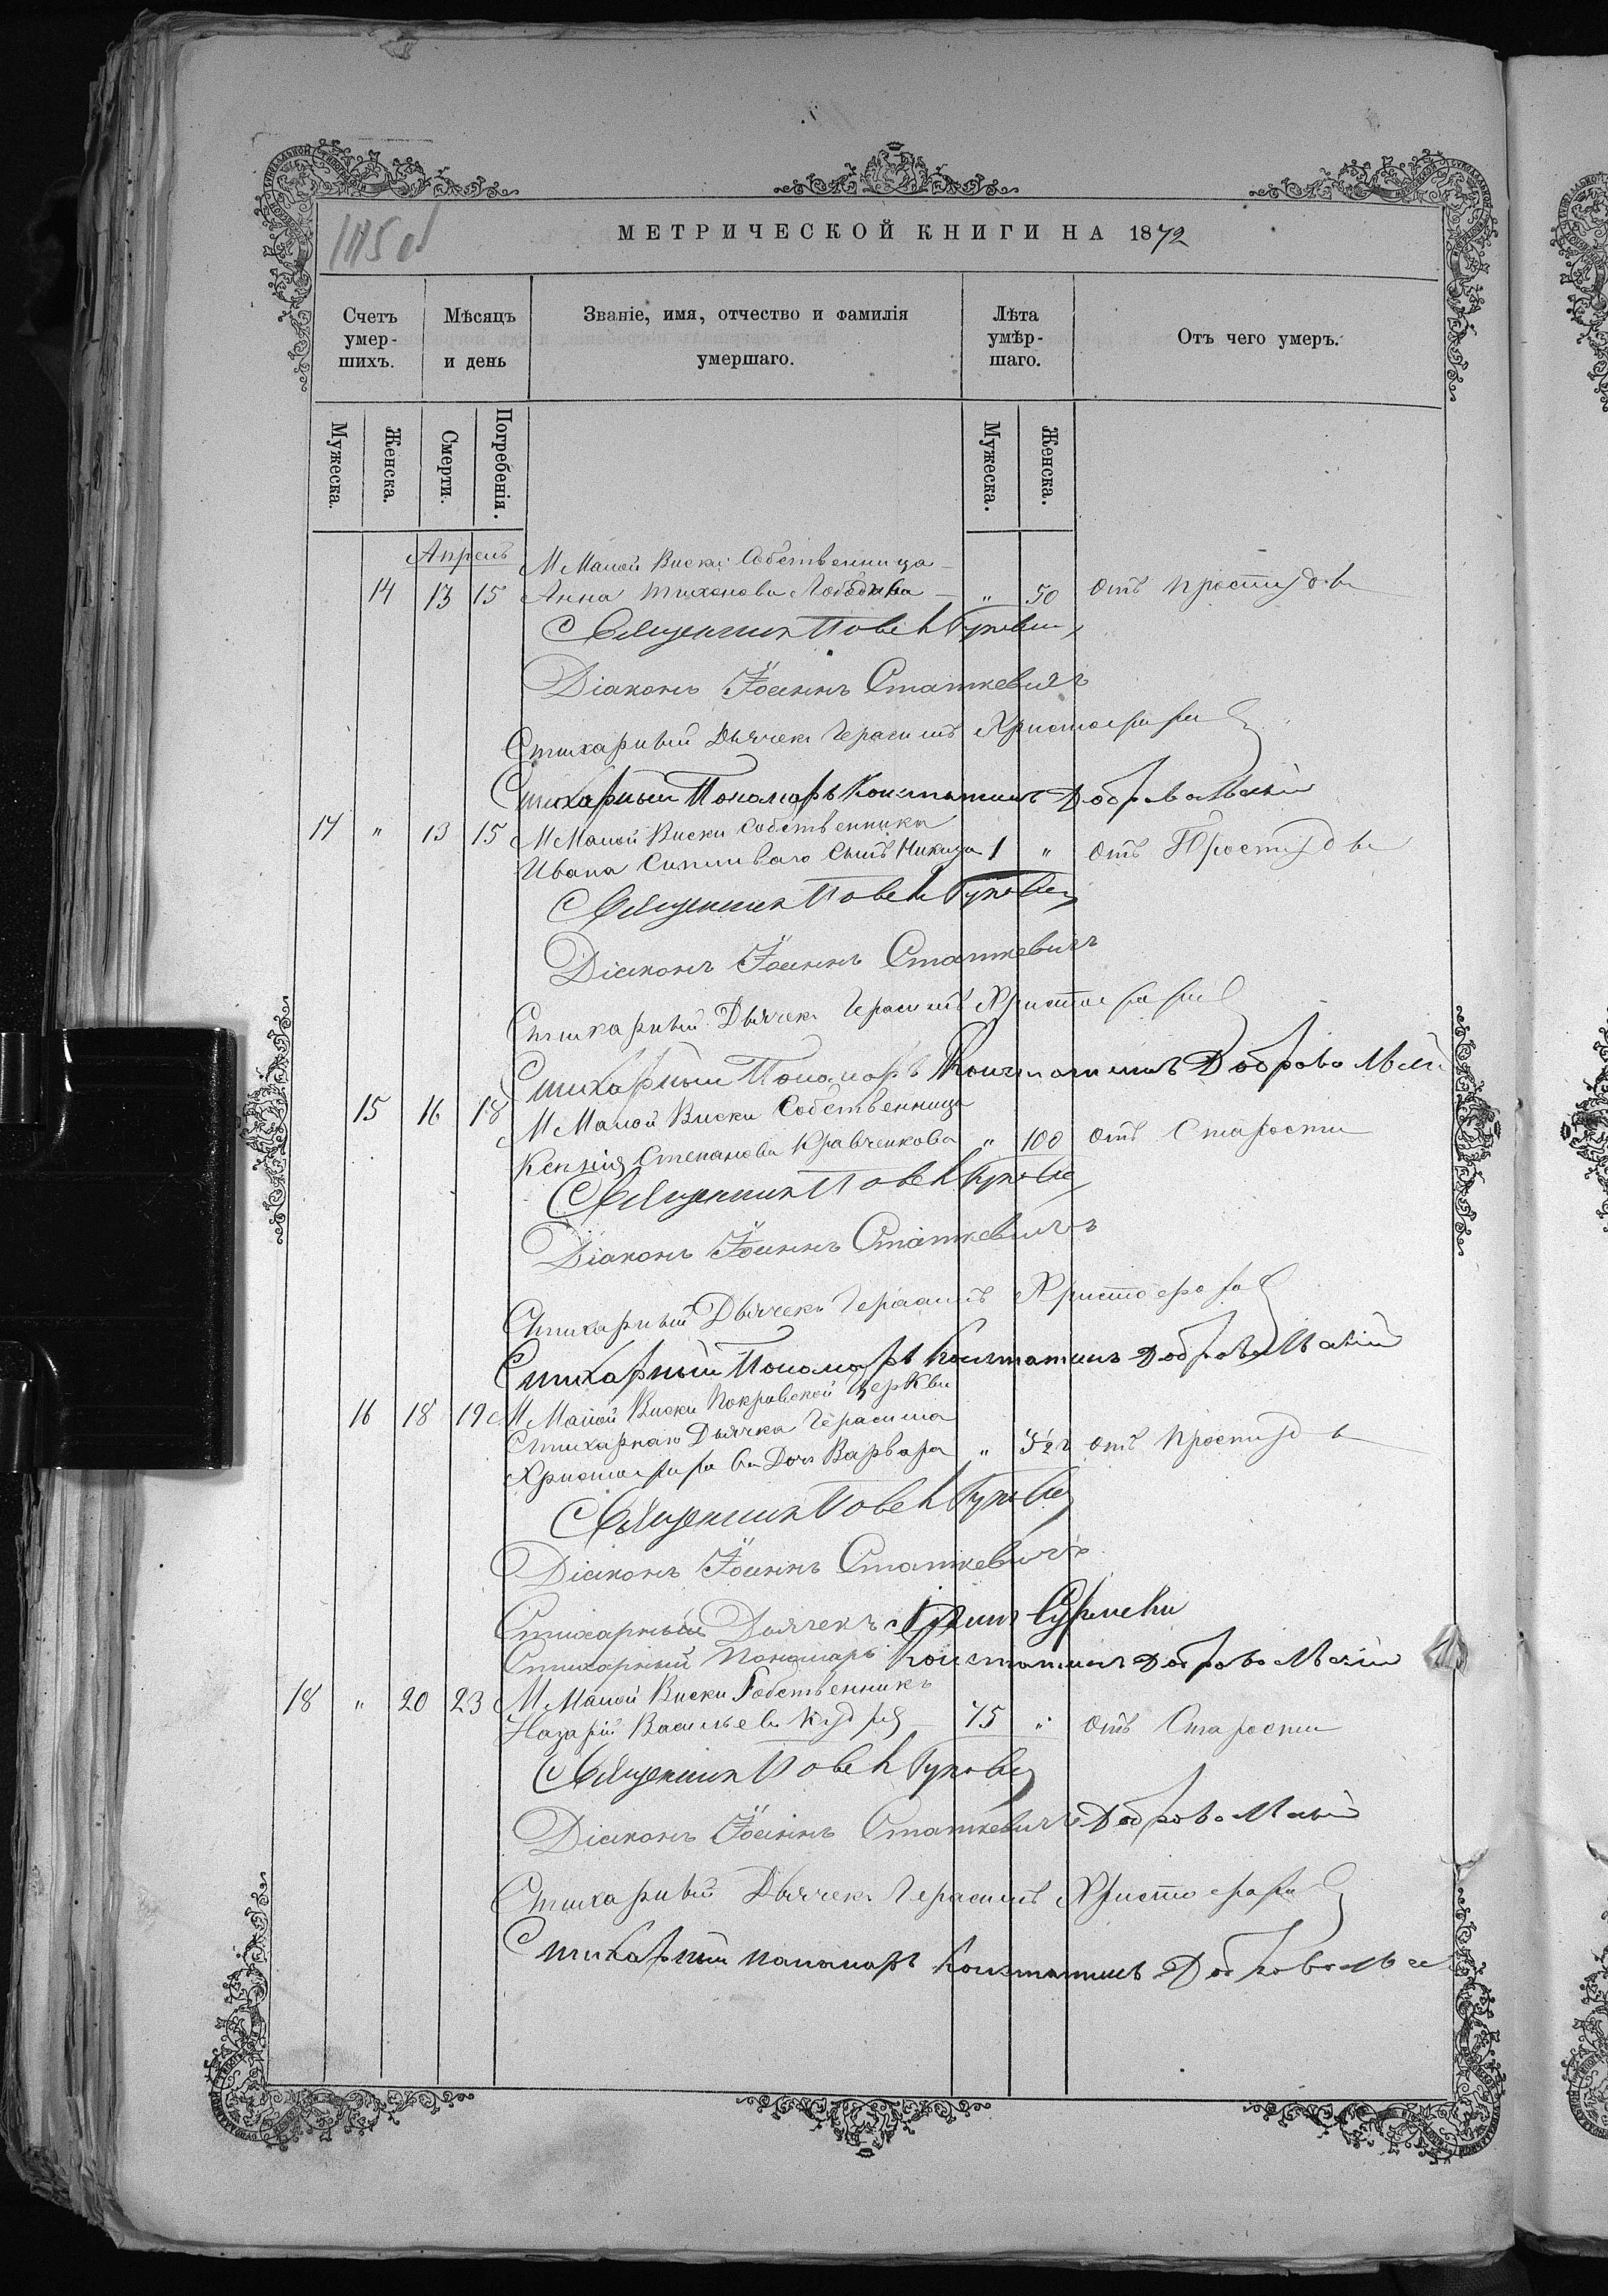 МЕТРИЧЕСКОЙ КНИГИ НА 1872
Счетъ умер- шихъ.
Мѣсяцъ и день
Званіе, имя, отчество и фамилія умершаго.
Лѣта умѣр- шаго.
Отъ чего умеръ.
Мужеска.
Женска.
Смерти.
Погребенія.
Мужеска.
Женска.
Апрель
М Малой Виски Собственница
14 13 15 Анна Тихонова „ 50 отъ простуды
Священникъ
Діаконъ Іоаннъ Статкевичъ
Стихарный Дьячекъ Герасимъ Христофоров
Стихарный Пономарь Константинъ Добровольскій
17 „ 13 15 М Малой Виски Собственника
Ивана сынъ Никита 1 „ отъ Простуды
Священникъ
Діаконъ Іоаннъ Статкевичъ
Стихарный Дьячекъ Герасимъ Христофоров
Стихарный Пономарь Константинъ Добровольскій
15 16 18 М Малой Виски Собственница
Ксенія Степанова Кравченкова „ 100 отъ Старости
Священникъ
Діаконъ Іоаннъ Статкевичъ
Стихарный Дьячекъ Герасимъ Христофоров
Стихарный Пономарь Константинъ Добровольскій
16 18 19 М Малой Виски Покровской Церкви
Стихарнаго Дьячка Герасима
Христофорова Дочь Варвара „ отъ простуды
Священникъ
Діаконъ Іоаннъ Статкевичъ
Стихарный Дьячекъ
Стихарный Пономарь Константинъ Добровольскій
18 „ 20 23 М Малой Виски Собственникъ
Назарій Васильевъ Кудря 75 „ отъ Старости
Священникъ
Діаконъ Іоаннъ Статкевичъ Добровольскій
Стихарный Дьячекъ Герасимъ Христофоров
Стихарный Пономарь Константинъ